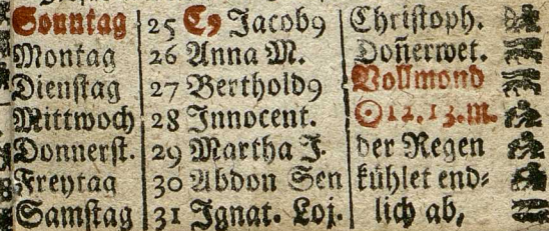 Sonntag 25 C9 Jacob9 Chriſtoph.
Montag 26 Anna M. Doñerwet.
Dienſtag 27 Berthold9 Vollmond
Mittwoch 28 Innocent. ☉12.13.m.
Donnerſt. 29 Martha J. der Regen
Freytag 30 Abdon Sen kühlet end⸗
Samſtag 31 Ignat. Loj. lich ab,